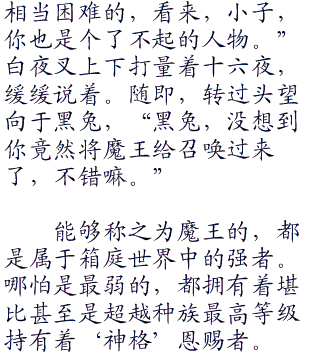 相当困难的，看来，小子，
你也是个了不起的人物。”
白夜叉上下打量着十六夜，
缓缓说着。随即，转过头望
向于黑兔，“黑兔，没想到
你竟然将魔王给召唤过来
了，不错嘛。”
能够称之为魔王的，都
是属于箱庭世界中的强者。
哪怕是最弱的，都拥有着堪
比甚至是超越种族最高等级
持有着‘神格’恩赐者。